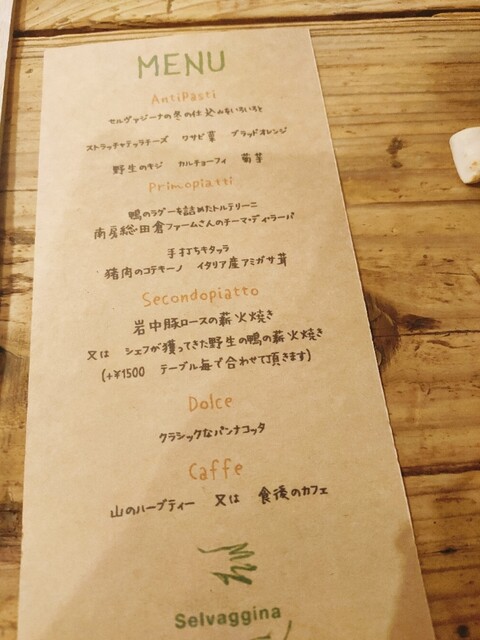 MENU
AntiPasti
セルヴァジーナの冬の仕込みをいろいろと
ストラッチャテッラチーズ ワサビ菜 ブラッドオレンジ
野生のキジ カルチョーフィ 菊芋
Primopiatti
鴨のラグーを詰めたトルテリーニ
南房総・田倉ファームさんのチーマ・ディ・ラーパ
手打ちキタッラ
猪肉のコテキーノ イタリア産アミガサ茸
Secondopiatto
岩中豚ロースの薪火焼き
又は シェフが獲ってきた野生の鴨の薪火焼き
(+¥1500 テーブル毎で合わせて頂きます)
Dolce
クラシックなパンナコッタ
Caffe
山のハーブティー 又は 食後のカフェ
Selvaggina